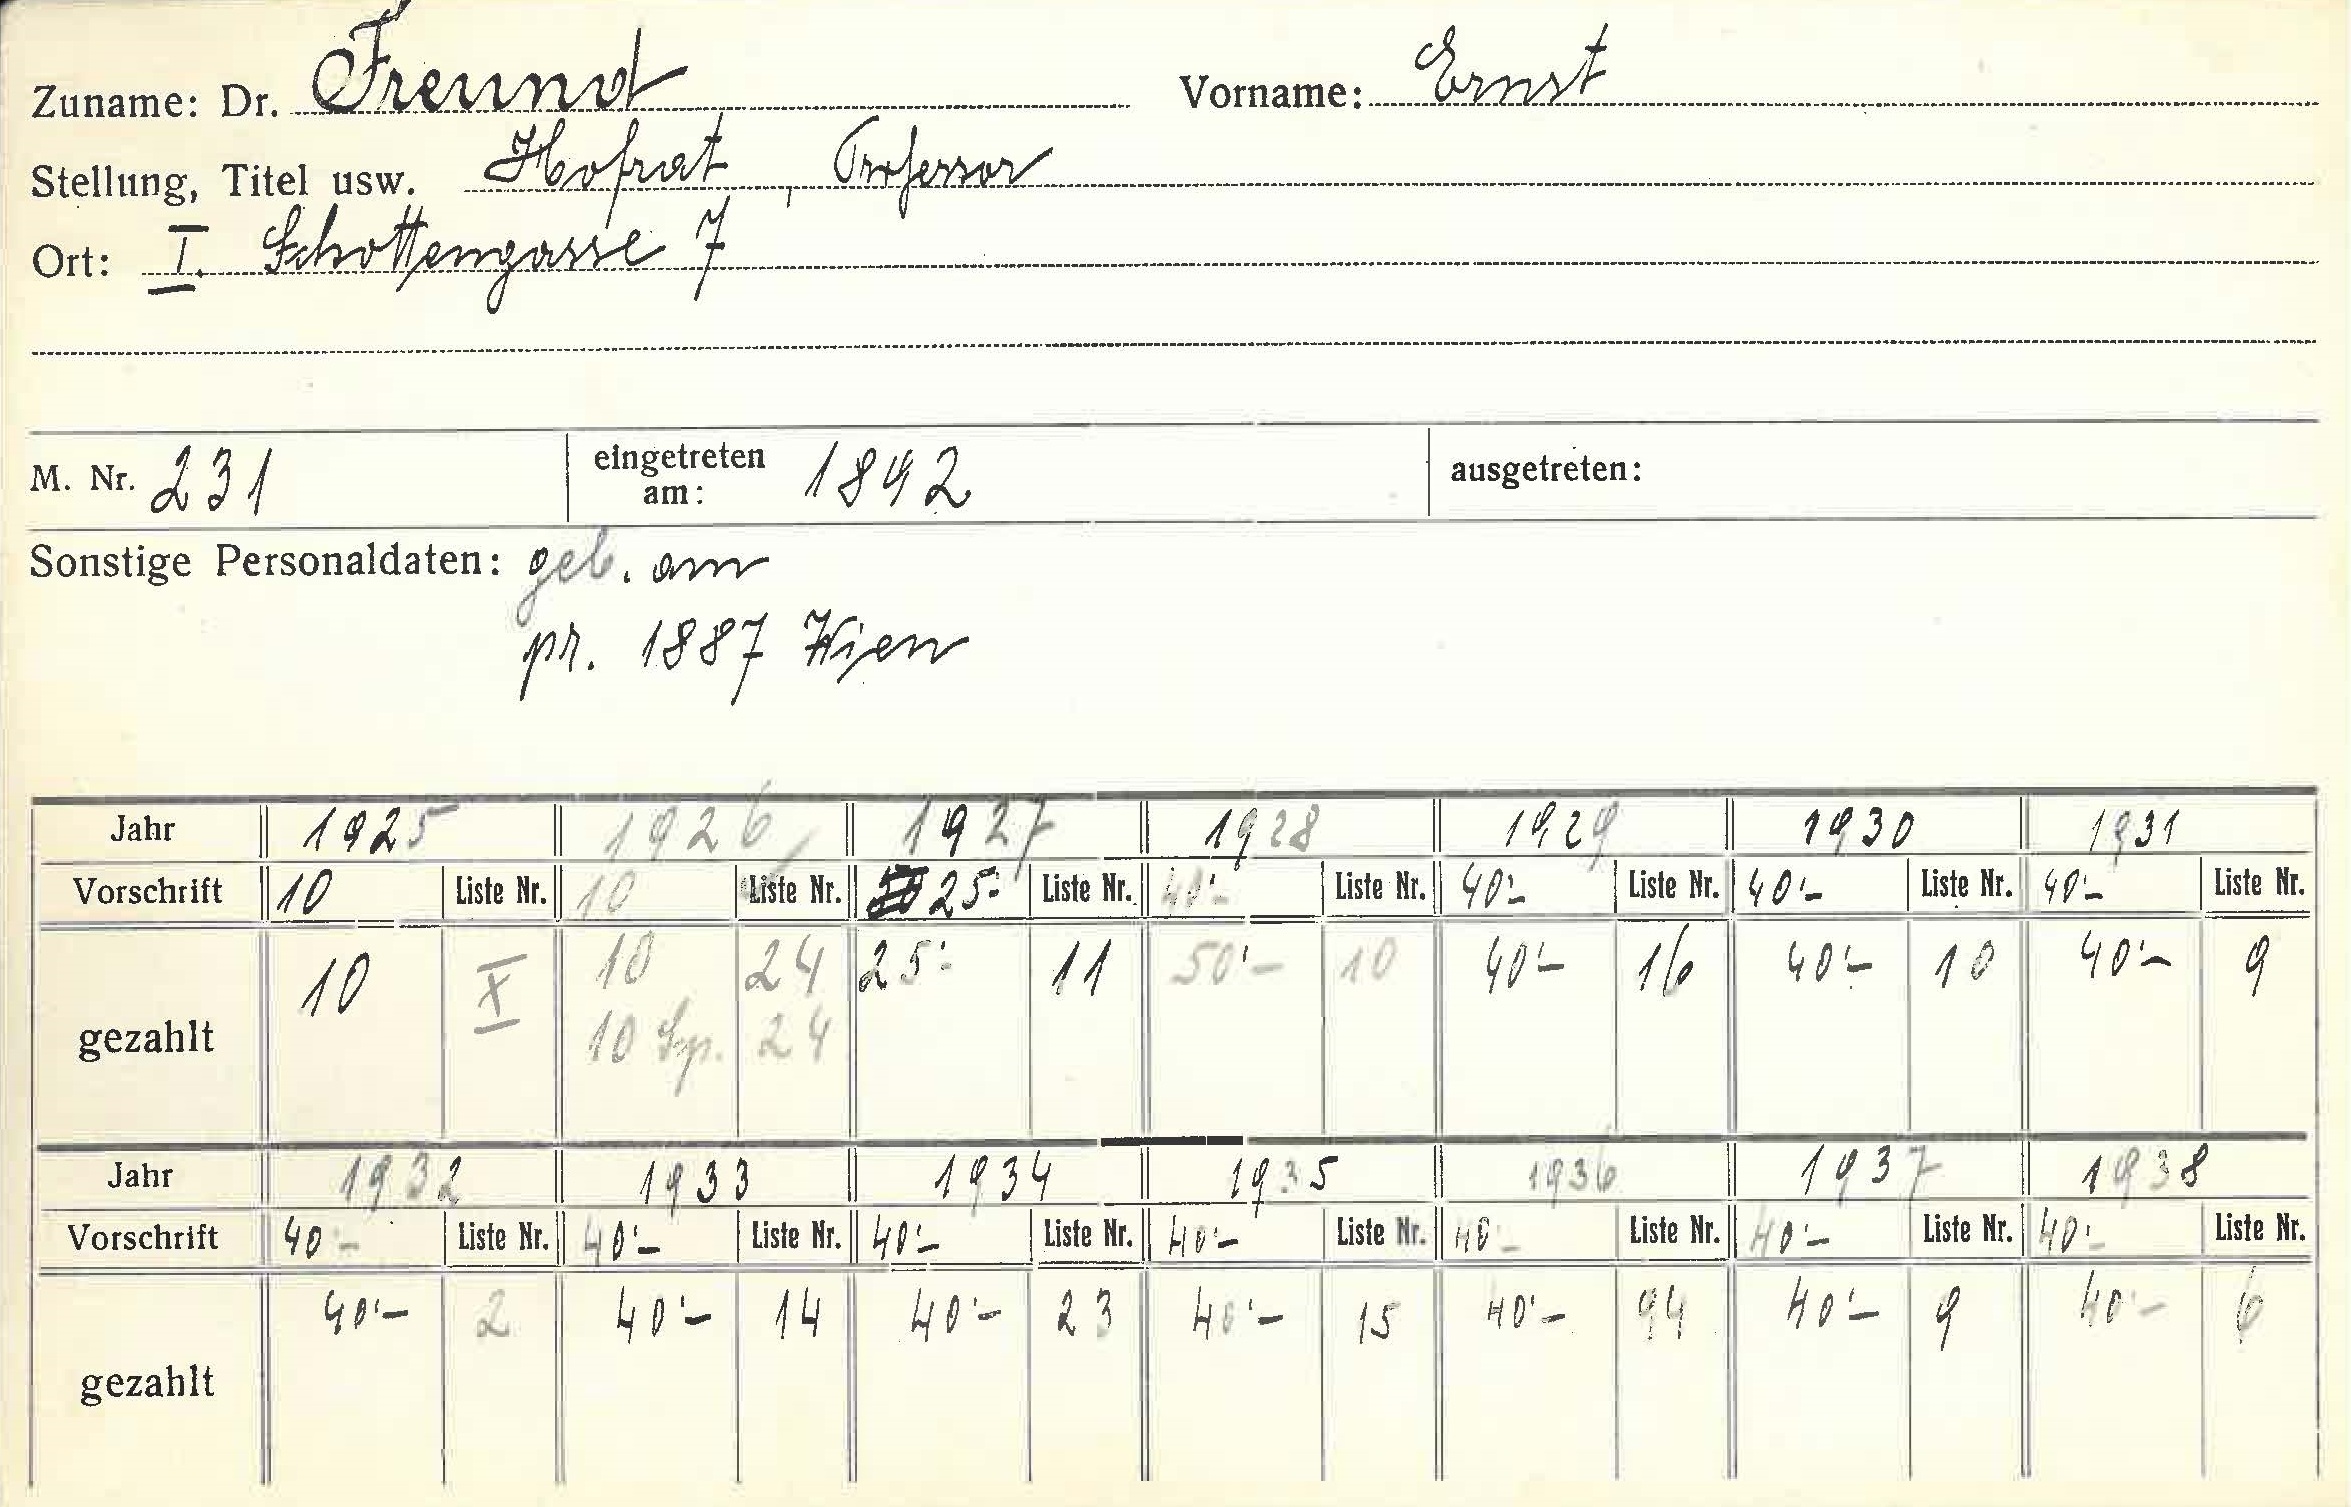 Zuname: Dr. Freund Vorname: Ernst
Stellung, Titel usw. Hofrat, Professor
Ort: I. Schottengasse 7
M. Nr. 231 eingetreten am: 1892 ausgetreten:
Sonstige Personaldaten: geb. am
pr. 1887 Wien
Jahr 1925 1926 1927 1928 1929 1930 1931
Vorschrift 10 Liste Nr. 10 Liste Nr. 25.- Liste Nr. 40.- Liste Nr. 40.- Liste Nr. 40.- Liste Nr. 40.- Liste Nr.
gezahlt 10 X 10 24 25.- 11 50.- 10 40.- 16 40.- 10 40.- 9
10 24
Jahr 1932 1933 1934 1935 1936 1937 1938
Vorschrift 40.- Liste Nr. 40.- Liste Nr. 40.- Liste Nr. 40.- Liste Nr. 40.- Liste Nr. 40.- Liste Nr. 40.- Liste Nr.
gezahlt 40.- 2 40.- 14 40.- 23 40.- 15 40.- 94 40.- 9 40.- 6